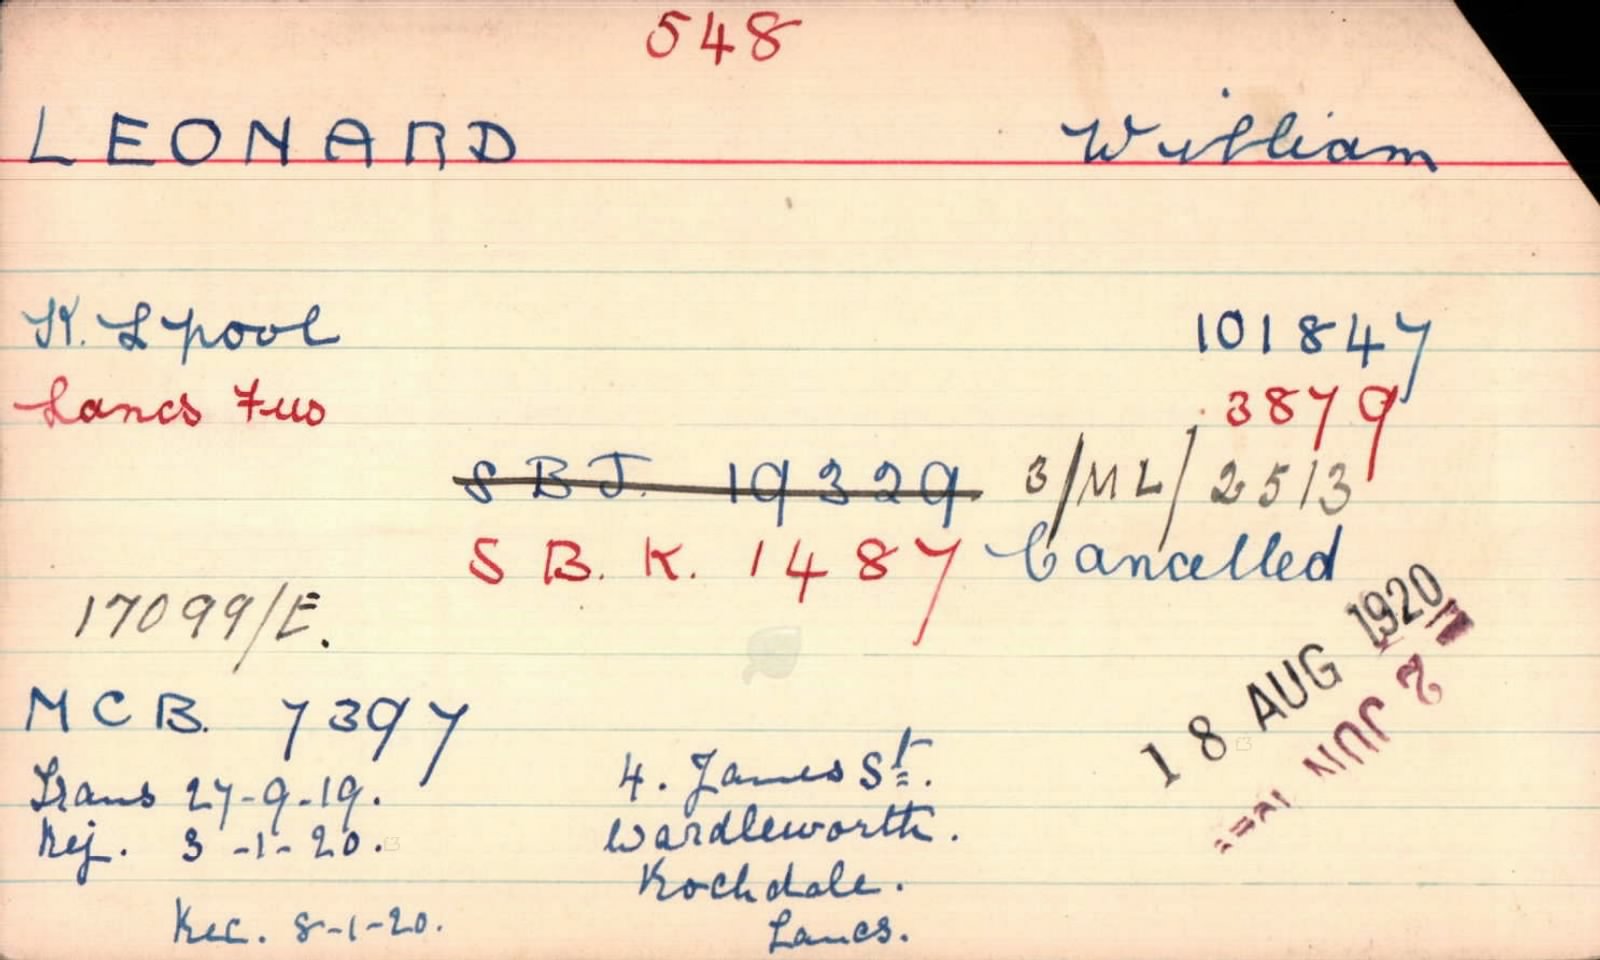 548
LEONARD William
K. Lpool 101847
Lancs Fus 3879
S B J. 19329 3/ML/2513
S B. K. 1487 Cancelled
17099/E.
18 AUG 1920
2 JUN
M C B. 7397
Trans 27-9-19.
Rej. 3-1-20.
Rec. 8-1-20.
4. James St.
Wardleworth.
Rochdale.
Lancs.